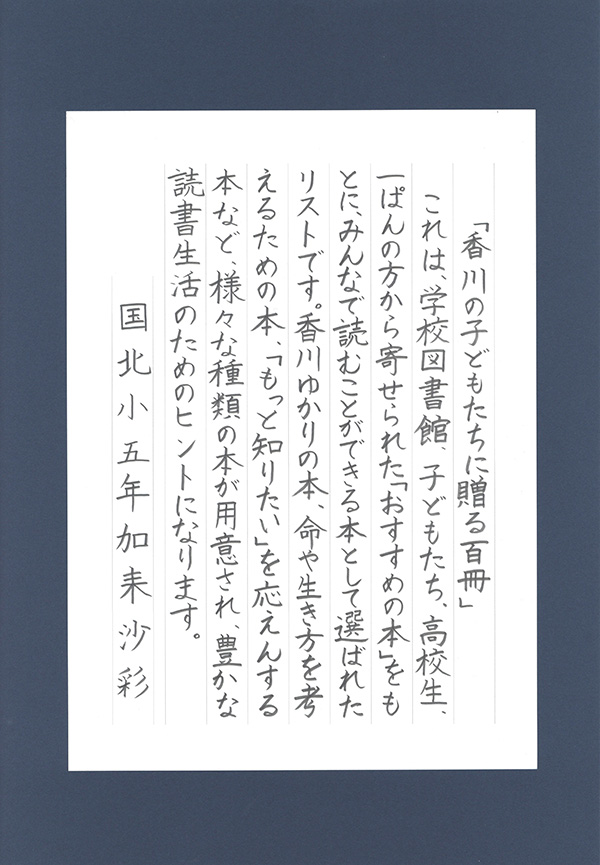 「香川の子どもたちに贈る百冊」
これは、学校図書館、子どもたち、高校生、
一ぱんの方から寄せられた「おすすめの本」をも
とに、みんなで読むことができる本として選ばれた
リストです。香川ゆかりの本、命や生き方を考
えるための本、「もっと知りたい」を応えんする
本など、様々な種類の本が用意され、豊かな
読書生活のためのヒントになります。
国北小五年加耒沙彩